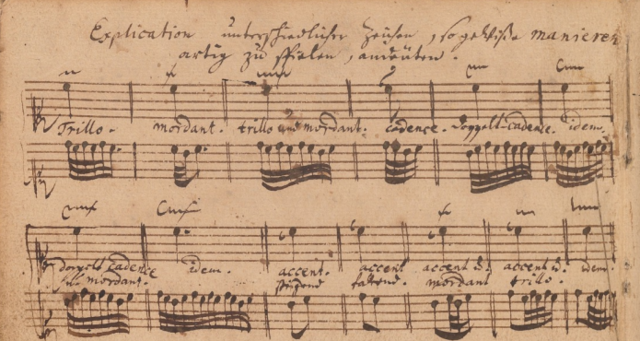 Explication unterschiedlicher Zeichen, so gewiße manieren
artig zu spielen, andeuten.
Trillo. mordant. trillo und mordant. cadence. Doppelt-cadence. idem.
doppelt cadence idem. accent accent accent u. accent u. idem.
u. mordant. steigend fallend. mordant trillo.